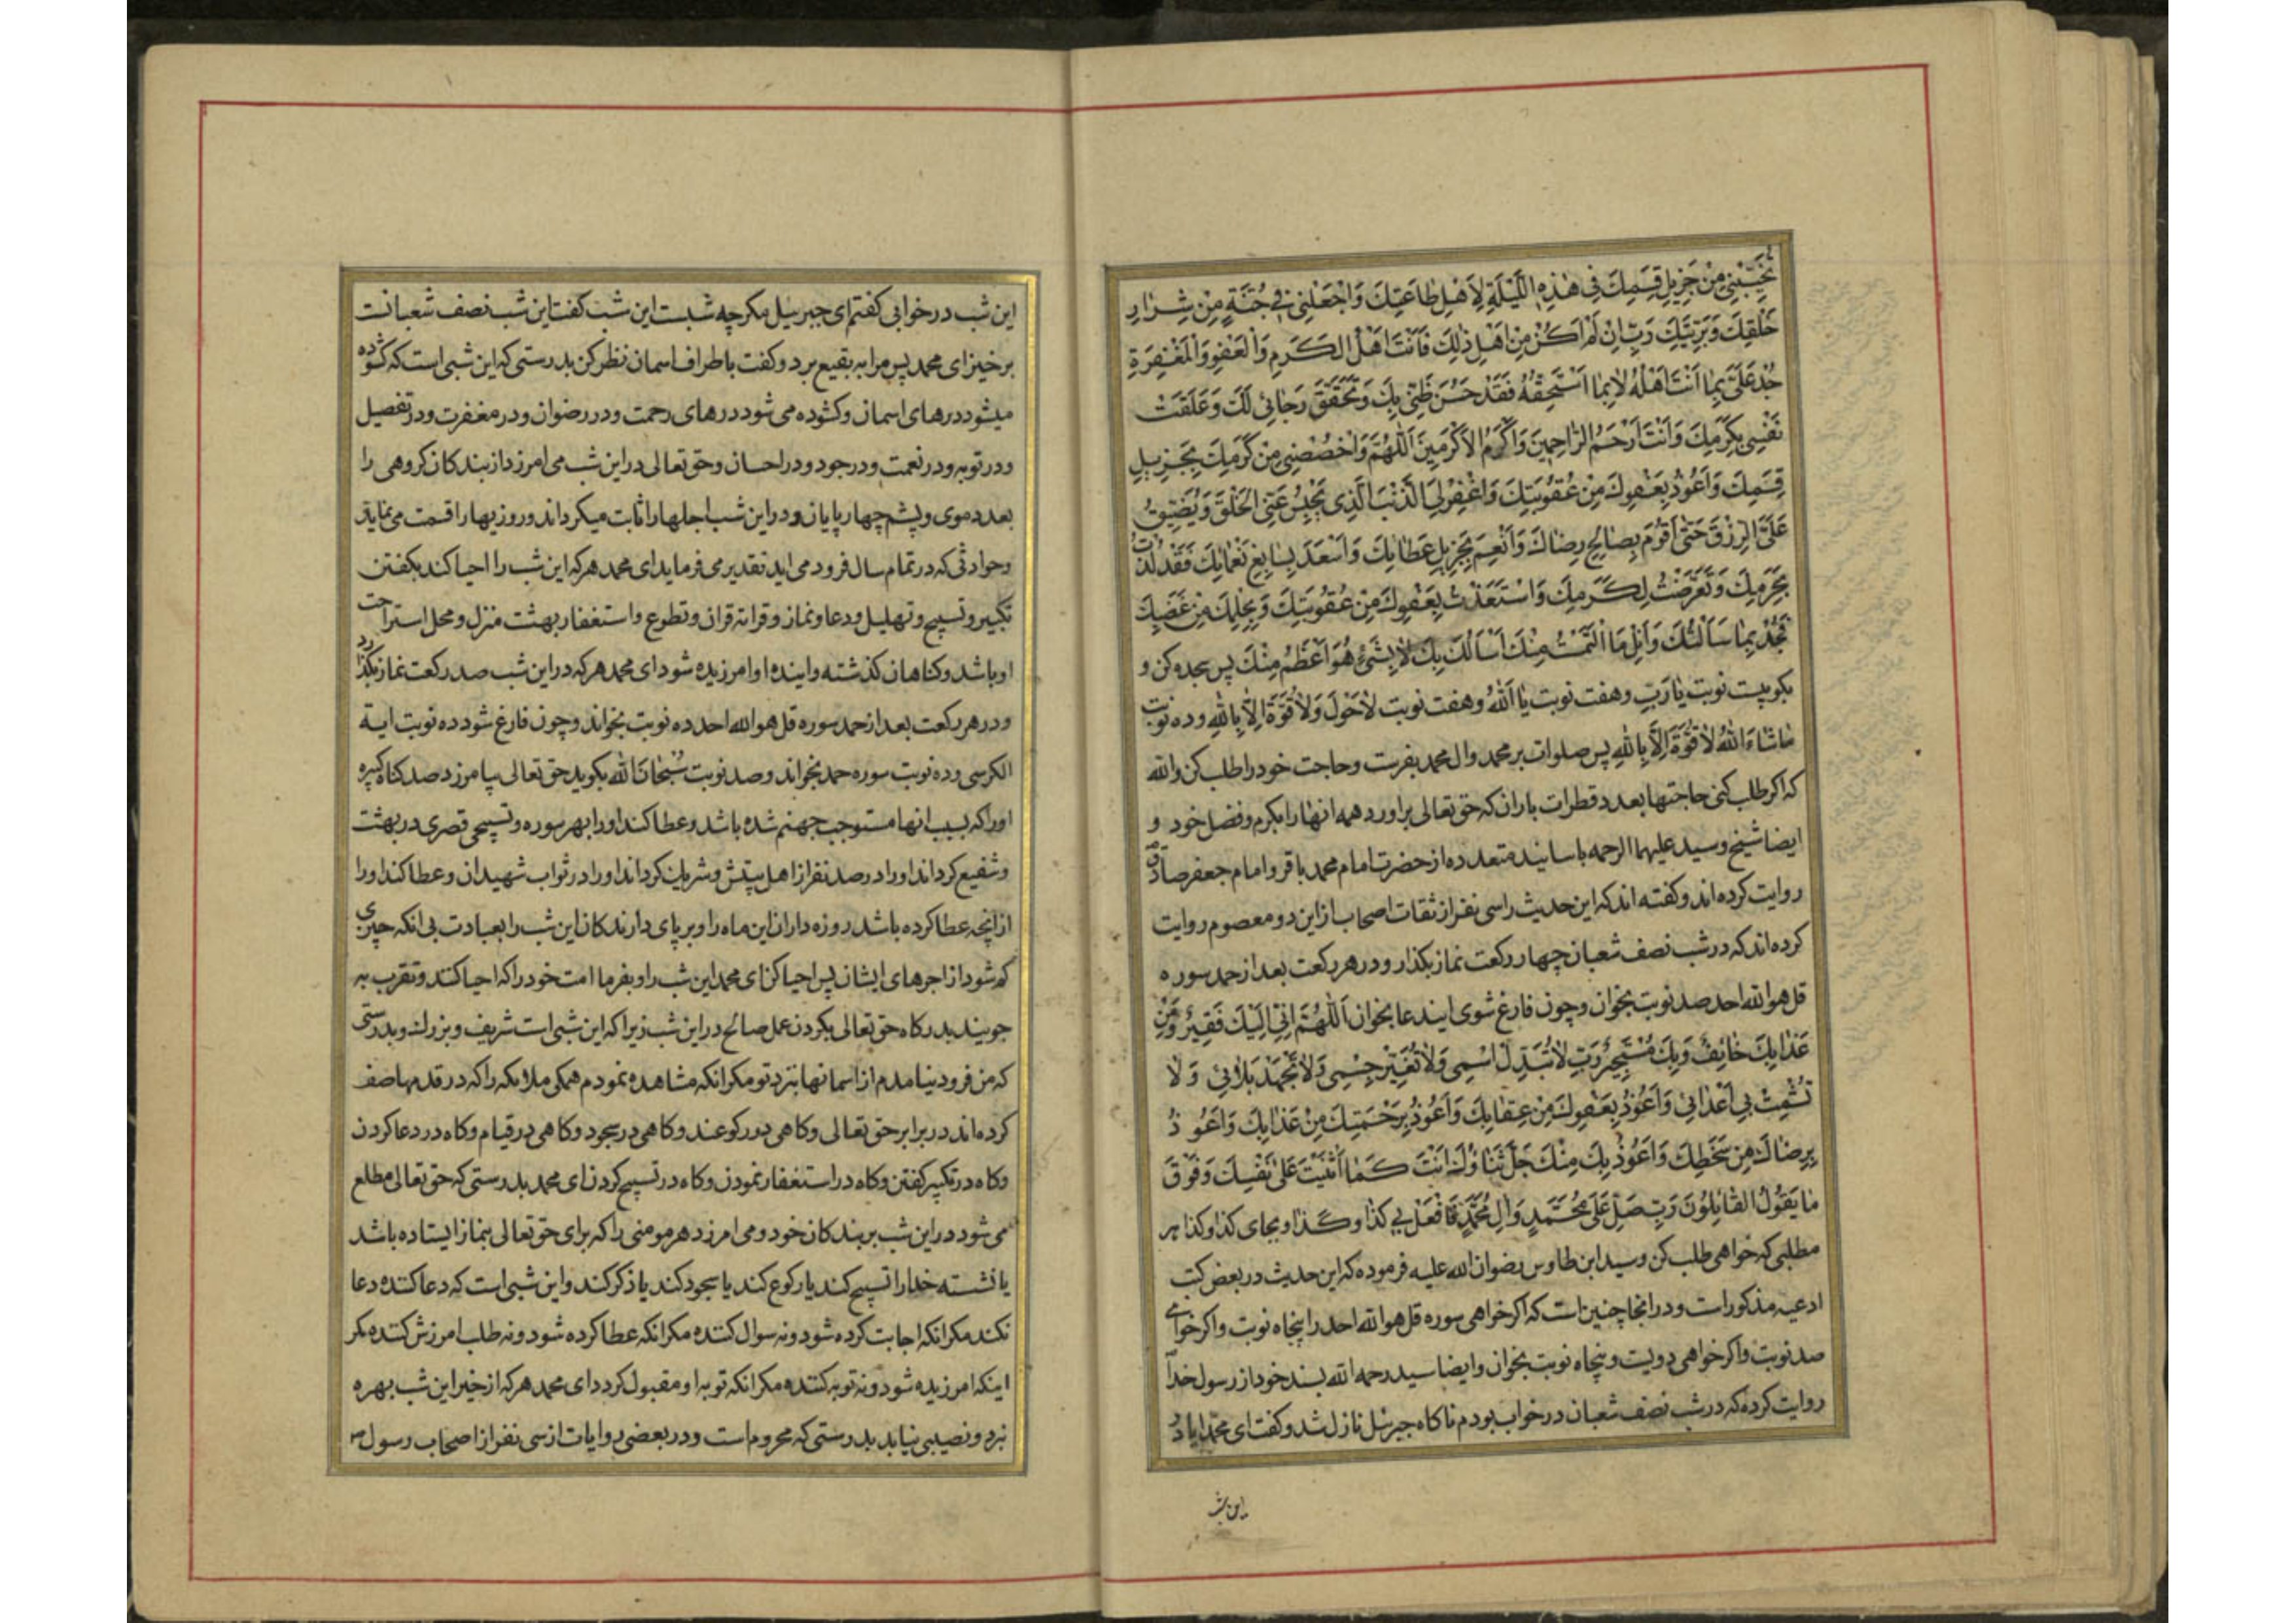 تُخَيِّبْنِي مِنْ جَزِيلِ قِسَمِكَ فِي هٰذِهِ اللَّيْلَةِ لِأَهْلِ طَاعَتِكَ وَاجْعَلْنِي فِي جُنَّةٍ مِنْ شِرَارِ
خَلْقِكَ وَبَرِيَّتِكَ رَبِّ إِنْ لَمْ أَكُنْ مِنْ أَهْلِ ذٰلِكَ فَأَنْتَ أَهْلُ الْكَرَمِ وَالْعَفْوِ وَالْمَغْفِرَةِ
جُدْ عَلَيَّ بِمَا أَنْتَ أَهْلُهُ لَا بِمَا أَسْتَحِقُّهُ فَقَدْ حَسُنَ ظَنِّي بِكَ وَتَحَقَّقَ رَجَائِي لَكَ وَعَلِقَتْ
نَفْسِي بِكَرَمِكَ وَأَنْتَ أَرْحَمُ الرَّاحِمِينَ وَأَكْرَمُ الْأَكْرَمِينَ اَللّٰهُمَّ وَاخْصُصْنِي مِنْ كَرَمِكَ بِجَزِيلِ
قِسَمِكَ وَأَعُوذُ بِعَفْوِكَ مِنْ عُقُوبَتِكَ وَاغْفِرْ لِيَ الذَّنْبَ الَّذِي يَحْبِسُ عَنِّي الْخَلْقَ وَيُضَيِّقُ
عَلَيَّ الرِّزْقَ حَتّٰى أَقُومَ بِصَالِحِ رِضَاكَ وَأَنْعَمَ بِجَزِيلِ عَطَائِكَ وَأَسْعَدَ بِسَابِغِ نَعْمَائِكَ فَقَدْ لُذْتُ
بِحَرَمِكَ وَتَعَرَّضْتُ لِكَرَمِكَ وَاسْتَعَذْتُ بِعَفْوِكَ مِنْ عُقُوبَتِكَ وَبِحِلْمِكَ مِنْ غَضَبِكَ
فَجُدْ بِمَا سَأَلْتُكَ وَأَنِلْ مَا الْتَمَسْتُ مِنْكَ أَسْأَلُكَ بِكَ لَا بِشَيْءٍ هُوَ أَعْظَمُ مِنْكَ پس سجده کن و
بکو بیست نوبت یَا رَبِّ وهفت نوبت یَا اَللّٰهُ وهفت نوبت لَا حَوْلَ وَلَا قُوَّةَ إِلَّا بِاللّٰهِ وده نوبت
مَا شَاءَ اللّٰهُ لَا قُوَّةَ إِلَّا بِاللّٰهِ پس صلوات بر محمد وال محمد بفرست وحاجت خود را طلب کن والله
که اکر طلب کنی حاجتها بعدد قطرات باران که حق تعالی براورد همه انها را بکرم وفضل خود و
ایضا شیخ وسید علیهما الرحمه باسانید متعدده از حضرت امام محمد باقر وامام جعفر صادق
روایت کرده اند وکفته اند که این حدیث را سی نفر از ثقات اصحاب از این دو معصوم روایت
کرده اند که در شب نصف شعبان چهار رکعت نماز بکذار ودر هر رکعت بعد از حمد سوره
قل هو الله احد صد نوبت بخوان وچون فارغ شوی ایندعا بخوان اَللّٰهُمَّ إِنِّي إِلَيْكَ فَقِيرٌ وَمِنْ
عَذَابِكَ خَائِفٌ وَبِكَ مُسْتَجِيرٌ رَبِّ لَا تُبَدِّلْ اسْمِي وَلَا تُغَيِّرْ جِسْمِي وَلَا تَجْهَدْ بَلَائِي وَلَا
تُشْمِتْ بِي أَعْدَائِي وَأَعُوذُ بِعَفْوِكَ مِنْ عِقَابِكَ وَأَعُوذُ بِرَحْمَتِكَ مِنْ عَذَابِكَ وَأَعُوذُ
بِرِضَاكَ مِنْ سَخَطِكَ وَأَعُوذُ بِكَ مِنْكَ جَلَّ ثَنَاؤُكَ أَنْتَ كَمَا أَثْنَيْتَ عَلٰى نَفْسِكَ وَفَوْقَ
مَا يَقُولُ الْقَائِلُونَ رَبِّ صَلِّ عَلٰى مُحَمَّدٍ وَاٰلِ مُحَمَّدٍ وَافْعَلْ بِي كَذَا وَكَذَا وبجای کذا وکذا هر
مطلبی که خواهی طلب کن وسید ابن طاوس رضوان الله علیه فرموده که این حدیث در بعض کتب
ادعیه مذکور است ودر انجا چنین است که اکر خواهی سوره قل هو الله احد را پنجاه نوبت واکر خواهی
صد نوبت واکر خواهی دویست وپنجاه نوبت بخوان وایضا سید رحمه الله بسند خود از رسول خدا
روایت کرده که در شب نصف شعبان در خواب بودم ناکاه جبرئیل نازل شد وکفت ای محمد ایا در
این شب
این شب در خوابی کفتم ای جبرییل مکر چه شبست این شب کفت این شب نصف شعبانست
برخیز ای محمد پس مرا به بقیع برد وکفت باطراف اسمان نظر کن بدرستی که این شبی است که کشوده
میشود درهای اسمان وکشوده می شود درهای رحمت ودر رضوان ودر مغفرت ودر تفضیل
ودر توبه ودر نعمت ودر جود ودر احسان وحق تعالی در این شب می امرزد از بندکان کروهی را
بعدد موی وپشم چهارپایان ودر این شب اجلها را ثابت میکرداند وروزیها را قسمت می نماید
وحوادثی که در تمام سال فرود می اید تقدیر می فرماید ای محمد هر که این شب را احیا کند بکفتن
تکبیر وتسبیح وتهلیل ودعا ونماز وقرائة قران وتطوع واستغفار بهشت منزل ومحل استراحت
او باشد وکناهان کذشته واینده او امرزیده شود ای محمد هر که در این شب صد رکعت نماز بکذارد
ودر هر رکعت بعد از حمد سوره قل هو الله احد ده نوبت بخواند وچون فارغ شود ده نوبت ایة
الکرسی وده نوبت سوره حمد بخواند وصد نوبت سُبْحَانَ اللّٰه بکوید حق تعالی بیامرزد صد کناه کبیره
او را که بسبب انها مستوجب جهنم شده باشد وعطا کند او را بهر سوره وتسبیحی قصری در بهشت
وشفیع کرداند او را در صد نفر از اهل بیتش وشریک کرداند او را در ثواب شهیدان وعطا کند او را
از انچه عطا کرده باشد روزه داران این ماه را وبرپای دارندکان این شب را بعبادت بی انکه چیزی
کم شود از اجرهای ایشان پس احیا کن ای محمد این شب را وبفرما امت خود را که احیا کنند وتقرب به
جویند بدرکاه حق تعالی بکردن عمل صالح در این شب زیرا که این شبی است شریف وبزرک وبدرستی
که من فرود نیامدم از اسمانها بنزد تو مکر انکه مشاهده نمودم همکی ملائکه را که در قدمها صف
کرده اند در برابر حق تعالی وکاهی در رکوعند وکاهی در سجود وکاهی در قیام وکاه در دعا کردن
وکاه در تکبیر کفتن وکاه در استغفار نمودن وکاه در تسبیح کردن ای محمد بدرستی که حق تعالی مطلع
می شود در این شب بر بندکان خود ومی امرزد هر مومنی را که برای حق تعالی بنماز ایستاده باشد
یا نشسته خدا را تسبیح کند یا رکوع کند یا سجود کند یا ذکر کند واین شبی است که دعا کننده دعا
نکند مکر انکه اجابت کرده شود ونه سوال کننده مکر انکه عطا کرده شود ونه طلب امرزش کننده مکر
اینکه امرزیده شود ونه توبه کننده مکر انکه توبه او مقبول کردد ای محمد هر که از خیر این شب بهره
نبرد ونصیبی نیابد بدرستی که محروم است ودر بعضی روایات از سی نفر از اصحاب رسول ص